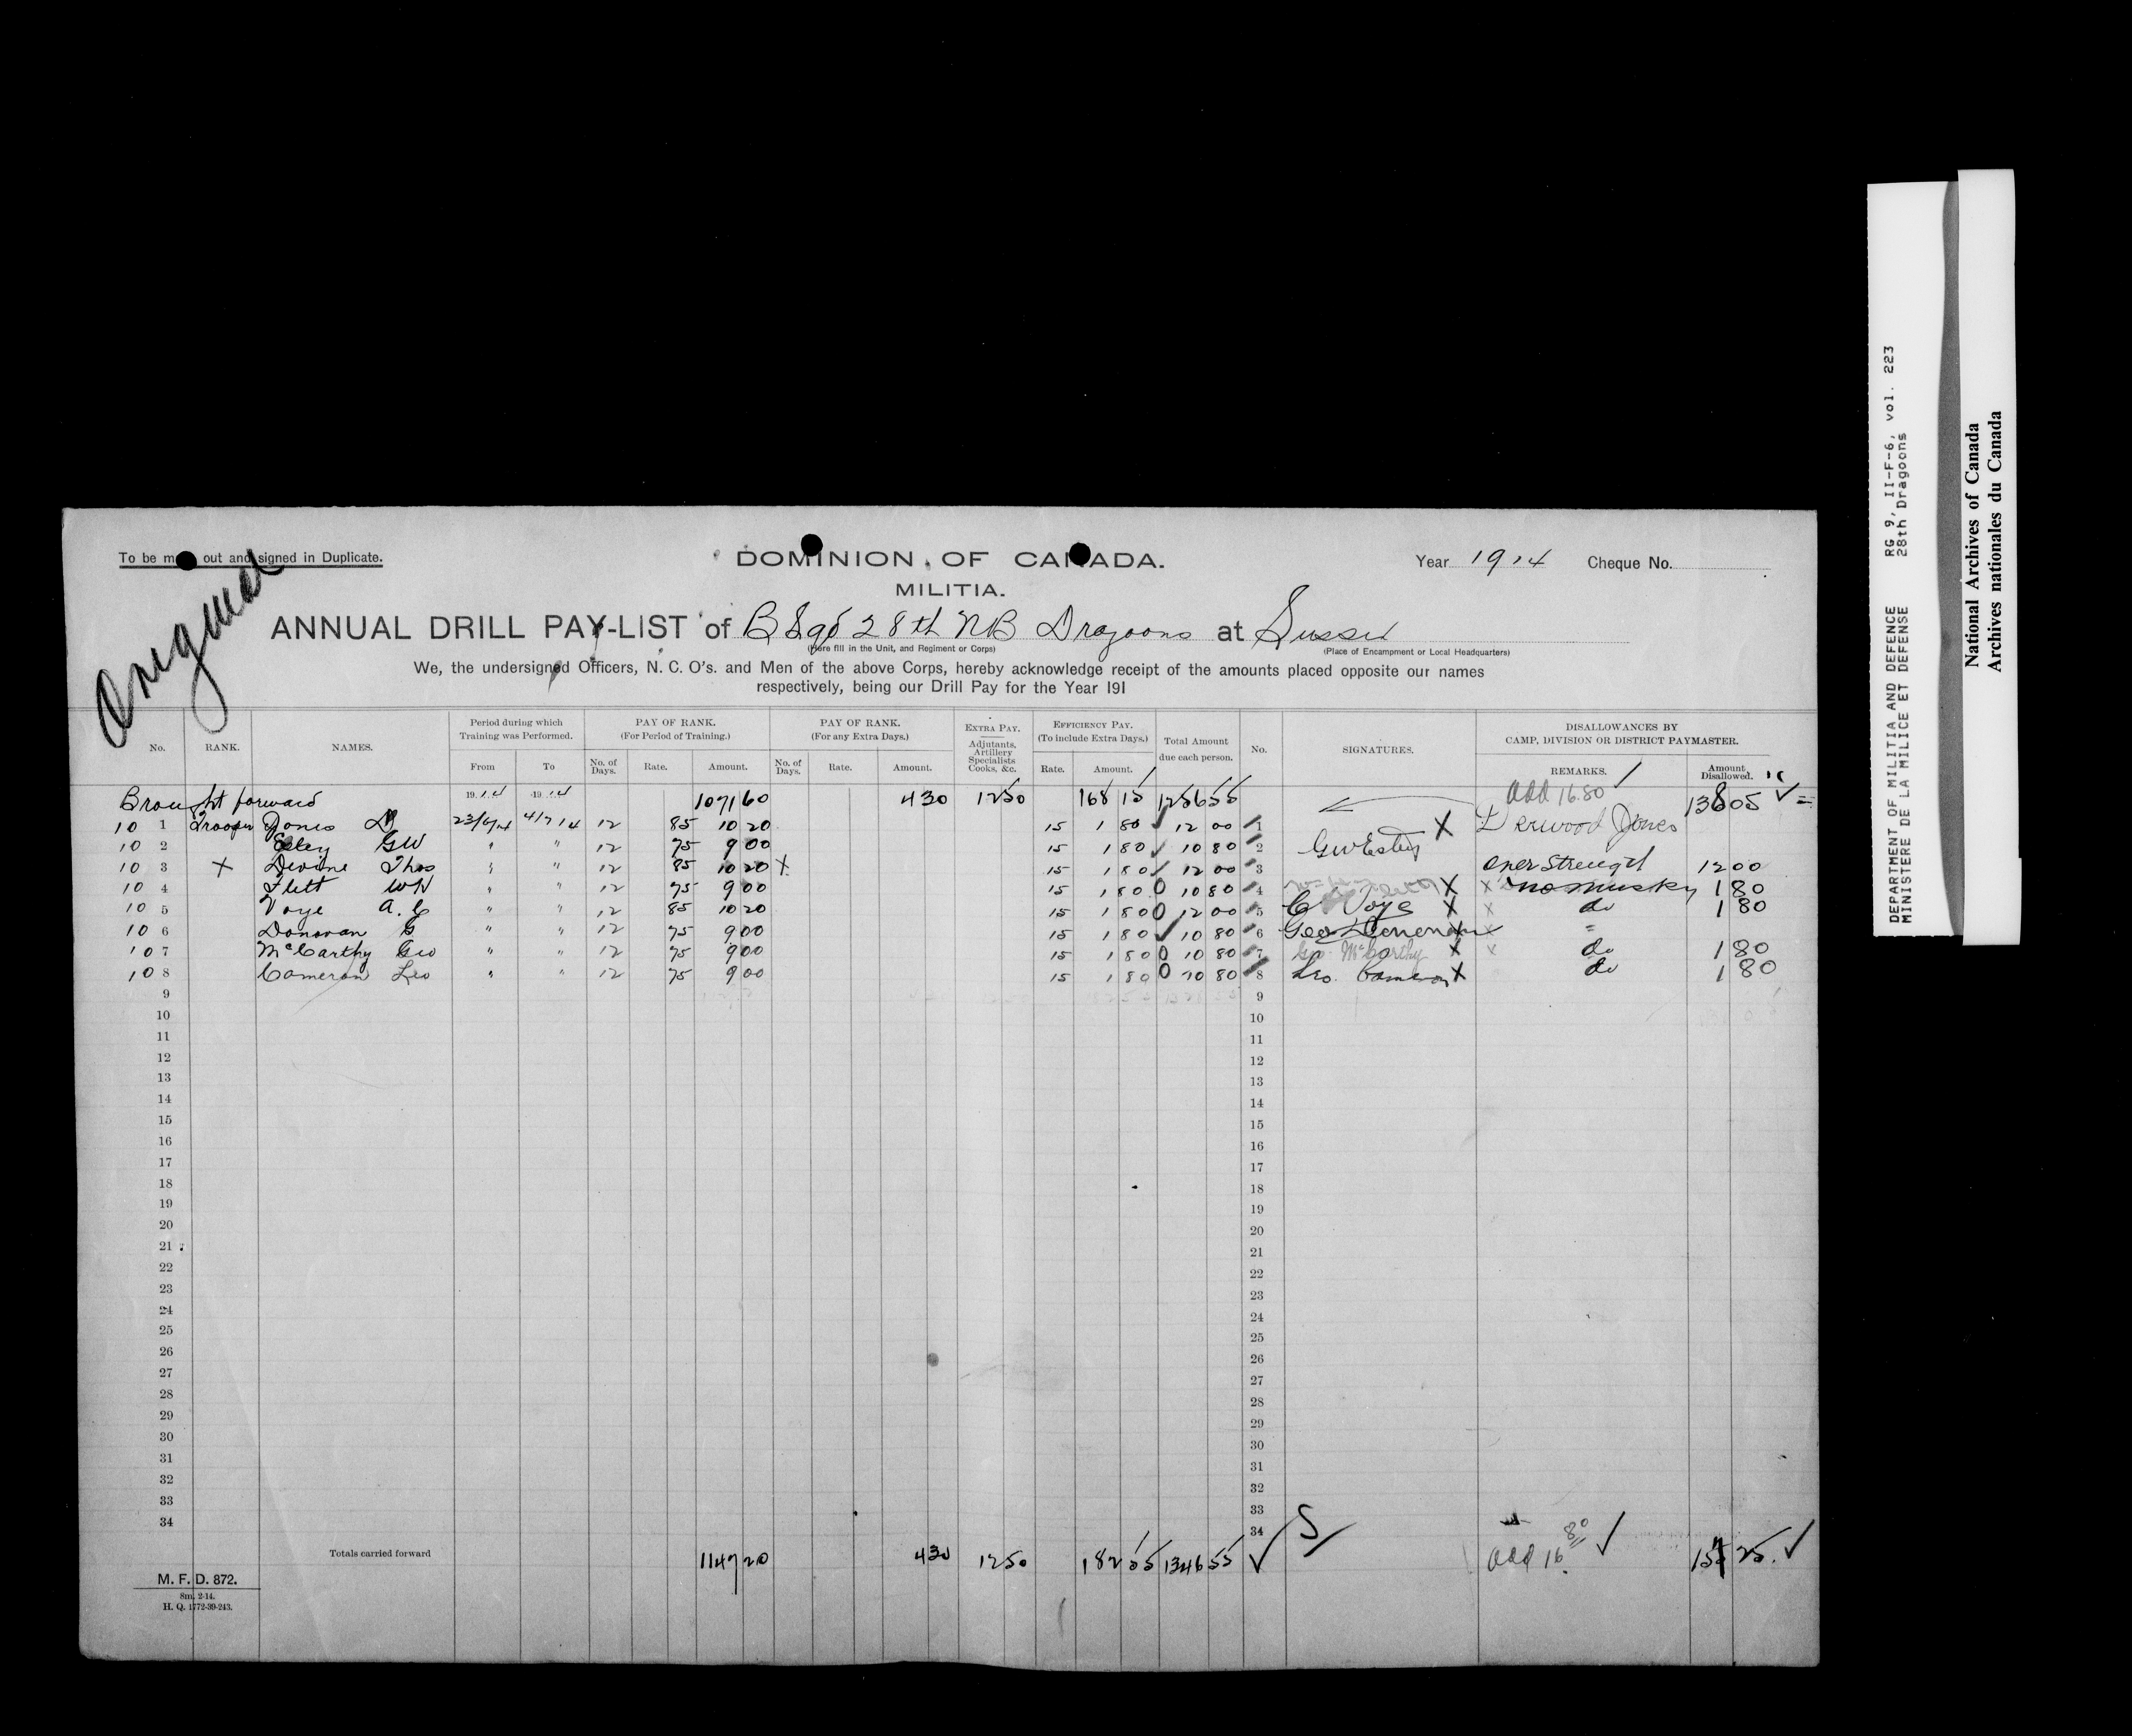 To be made out and signed in Duplicate.
Original
DOMINION OF CANADA.
MILITIA.
Year 1914 Cheque No.
ANNUAL DRILL PAY-LIST of B Sqd 28th NB Dragoons at Sussex
(Here fill in the Unit, and Regiment or Corps) (Place of Encampment or Local Headquarters)
We, the undersigned Officers, N. C. O's. and Men of the above Corps, hereby acknowledge receipt of the amounts placed opposite our names
respectively, being our Drill Pay for the Year 191
No. RANK. NAMES. Period during which Training was Performed. From To PAY OF RANK. (For Period of Training.) No. of Days. Rate. Amount. PAY OF RANK. (For any Extra Days.) No. of Days. Rate. Amount. EXTRA PAY. Adjutants, Artillery Specialists Cooks, &c. EFFICIENCY PAY. (To include Extra Days.) Rate. Amount. Total Amount due each person. No. SIGNATURES. DISALLOWANCES BY CAMP, DIVISION OR DISTRICT PAYMASTER. REMARKS. Amount Disallowed.
Brought forward 1914 1914 1071 60 4 30 12 50 168 15 1256 55 Add 16.80 138 05
10 1 Trooper Jones D 23/6/14 4/7/14 12 85 10 20 15 1 80 12 00 1 X Derwood Jones
10 2 Estey GW " " 12 75 9 00 15 1 80 10 80 2 GW Estey
10 3 X Devine Thos " " 12 85 10 20 X 15 1 80 12 00 3 over Strength 12 00
10 4 Flett WH " " 12 75 9 00 15 1 80 0 10 80 4 X X no musky 1 80
10 5 Voye A. C " " 12 85 10 20 15 1 80 0 12 00 5 C Voye X X do 1 80
10 6 Donovan G " " 12 75 9 00 15 1 80 10 80 6 Geo Donovan X X "
10 7 McCarthy Geo " " 12 75 9 00 15 1 80 0 10 80 7 Geo McCarthy X X do 1 80
10 8 Cameron Leo " " 12 75 9 00 15 1 80 0 10 80 8 Leo. Cameron X do 1 80
9 9
10 10
11 11
12 12
13 13
14 14
15 15
16 16
17 17
18 18
19 19
20 20
21 21
22 22
23 23
24 24
25 25
26 26
27 27
28 28
29 29
30 30
31 31
32 32
33 33
34 34
Totals carried forward 1147 20 4 30 12 50 182 55 1346 55 Add 16 80 157 25
M. F. D. 872.
8m. 2-14.
H. Q. 1772-39-243.
DEPARTMENT OF MILITIA AND DEFENCE RG 9, II-F-6, vol. 223
MINISTERE DE LA MILICE ET DEFENSE 28th Dragoons
National Archives of Canada
Archives nationales du Canada